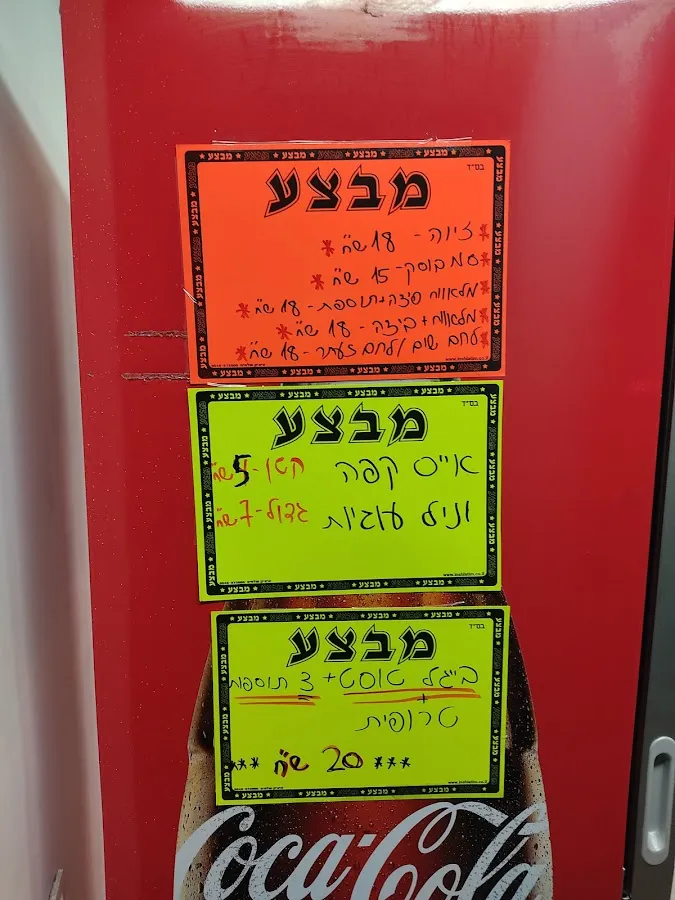 בס״ד
מבצע
* זיווה - 18 ש״ח *
בוסק - 15 ש״ח *
* מלאווח פיזה + תוספת - 18 ש״ח *
* מלאווח + ביזה - 18 ש״ח *
לחם שום / לחם זעתר - 18 ש״ח *
www.institutim.co.il
בס״ד
מבצע
אייס קפה קטן - 5 ש״ח
וניל עוגיות גדול - 7 ש״ח
בס״ד
מבצע
בייגל טוסט + 3 תוספות
+
טרופית
*** 20 ש״ח ***
Coca-Cola